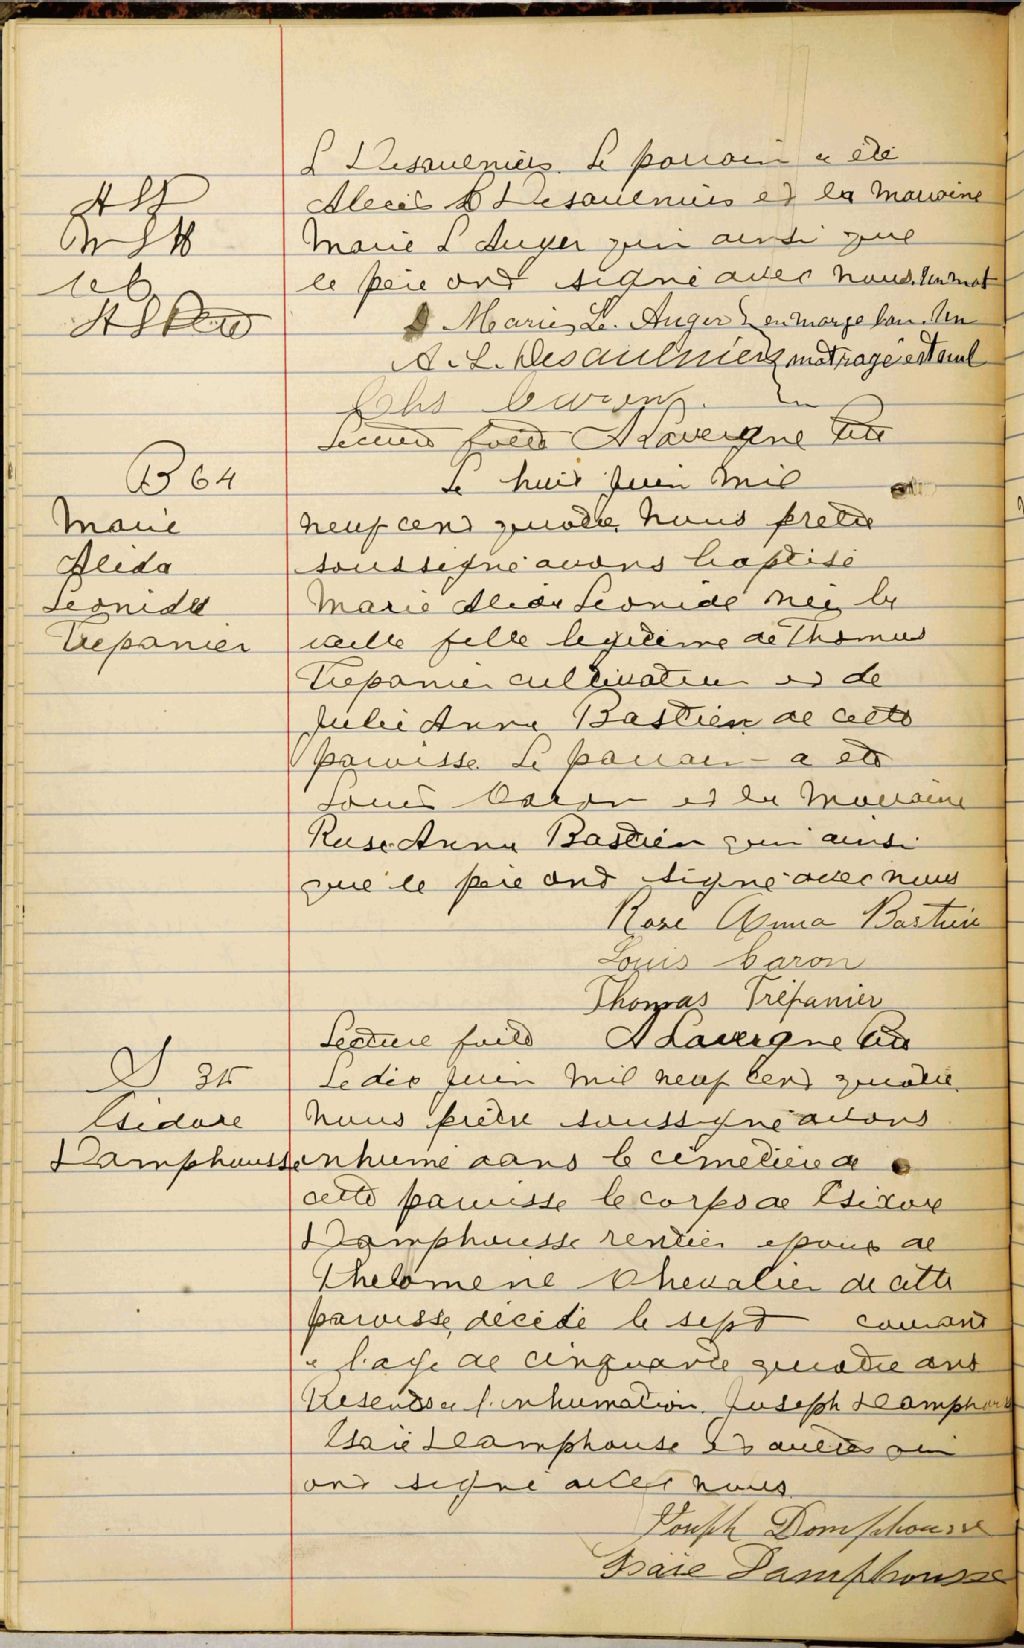 L Desaulniers. Le parrain a été
Alexis L Desaulniers et la marraine
Marie L Auger qui ainsi que
le père ont signé avec nous. Un mot
Marie L. Auger } en marge bon. Un
A. L. Desaulniers } mot rayé est nul
Chs Caron
Lecture faite A Lavergne Ptre
B 64
Marie
Alida
Leonide
Trepanier
Le huit juin mil
neuf cent quatre, nous prêtre
soussigné avons baptisé
Marie Alida Leonide née la
veille fille legitime de Thomas
Trepanier cultivateur et de
Julie Anna Bastien de cette
paroisse. Le parrain a été
Louis Caron et la marraine
Rose Anna Bastien qui ainsi
que le père ont signé avec nous
Rose Anna Bastien
Louis Caron
Thomas Trépanier
Lecture faite A Lavergne Ptre
S 35
Isidore
Damphousse
Le dix juin mil neuf cent quatre
nous prêtre soussigné avons
inhumé dans le cimetière de
cette paroisse le corps de Isidore
Damphousse rentier epoux de
Philomene Chevalier de cette
paroisse, décédé le sept courant
a l'age de cinquante quatre ans
Présents a l'inhumation. Joseph Damphousse
Isaïe Damphousse et autres qui
ont signé avec nous
Joseph Domphousse
Isaïe Damphousse